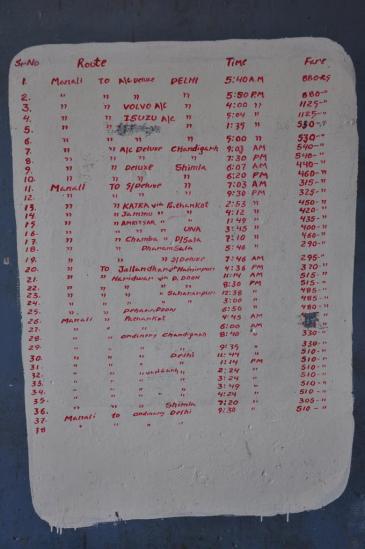 Sr.No Route Time Fare
1. Manali TO A/c Deluxe DELHI 5:40 A.M 880-RS
2. " " " " 5:50 P.M 880-"
3. " " VOLVO A/c " 4:00 " 1125-"
4. " " ISUZU A/c " 5:04 " 1125-"
5. " " " 1:35 " 530-"
6. " " " 5:00 " 530-"
7. " " A/c Deluxe Chandigarh 9:03 AM 540-"
8. " " " " 7:30 PM 540-"
9. " " Deluxe Shimla 6:07 AM 440-"
10. " " " " 6:20 PM 460-"
11. Manali TO S/Deluxe " 7:03 AM 315-"
12. " " " " 9:30 PM 325-"
13. " " KATRA via Pathankot 2:53 " 450-"
14. " " Jammu " " 4:12 " 420-"
15. " " AMRITSAR " " 11:49 " 435-"
16. " " " UNA 3:45 " 400-"
17. " " Chamba D/Sala 7:10 " 460-"
18. " " DharamSala 5:46 " 290-"
" " S/Deluxe 7:46 AM 295-"
20. " TO Jallandhar 4:36 PM 370-"
21. " " Haridwar via D.DOON 11:14 AM 515-"
22. " " " " " 8:30 PM 515-"
23. " " " " Saharanpur 12:38 " 485-"
24. " " " " 3:00 " 485-"
25. " " DEHRADOON 6:50 " 480-"
26. Manali " Pathankot 4:45 AM
27. " " " 6:00 AM
28. " " ordinary Chandigarh 8:40 " 330-"
29. " " " " 9:35 " 330-"
30. " " " Delhi 11:44 " 510-"
31. " " " " 1:14 PM 510-"
32. " " " " 2:24 " 510-"
33. " " " " 3:24 " 510-"
34. " " " " 3:49 " 510-"
" " " " 4:24 " 510-"
35. " " " Shimla 7:20 " 305-"
36. Manali to ordinary Delhi 9:30 " 510-"
37. " " " "
38